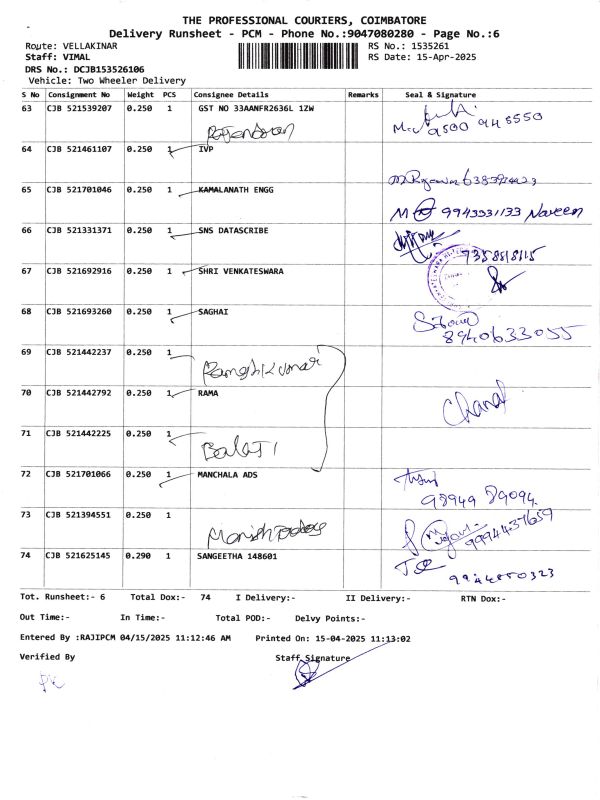 THE PROFESSIONAL COURIERS, COIMBATORE
Delivery Runsheet - PCM - Phone No.:9047080280 - Page No.:6
Route: VELLAKINAR RS No.: 1535261
Staff: VIMAL RS Date: 15-Apr-2025
DRS No.: DCJB153526106
Vehicle: Two Wheeler Delivery
S No Consignment No Weight PCS Consignee Details Remarks Seal & Signature
63 CJB 521539207 0.250 1 GST NO 33AANFR2636L 1ZW
9500 945550
64 CJB 521461107 0.250 1 IVP
65 CJB 521701046 0.250 1 KAMALANATH ENGG
9943931133 Naveen
66 CJB 521331371 0.250 1 SNS DATASCRIBE
67 CJB 521692916 0.250 1 SHRI VENKATESWARA
68 CJB 521693260 0.250 1 SAGHAI
8940633055
69 CJB 521442237 0.250 1
Rameshkumar
70 CJB 521442792 0.250 1 RAMA
71 CJB 521442225 0.250 1
Balaji
72 CJB 521701066 0.250 1 MANCHALA ADS
98949 89094
73 CJB 521394551 0.250 1
9994437659
74 CJB 521625145 0.290 1 SANGEETHA 148601
Tot. Runsheet:- 6 Total Dox:- 74 I Delivery:- II Delivery:- RTN Dox:-
Out Time:- In Time:- Total POD:- Delvy Points:-
Entered By :RAJIPCM 04/15/2025 11:12:46 AM Printed On: 15-04-2025 11:13:02
Verified By Staff Signature